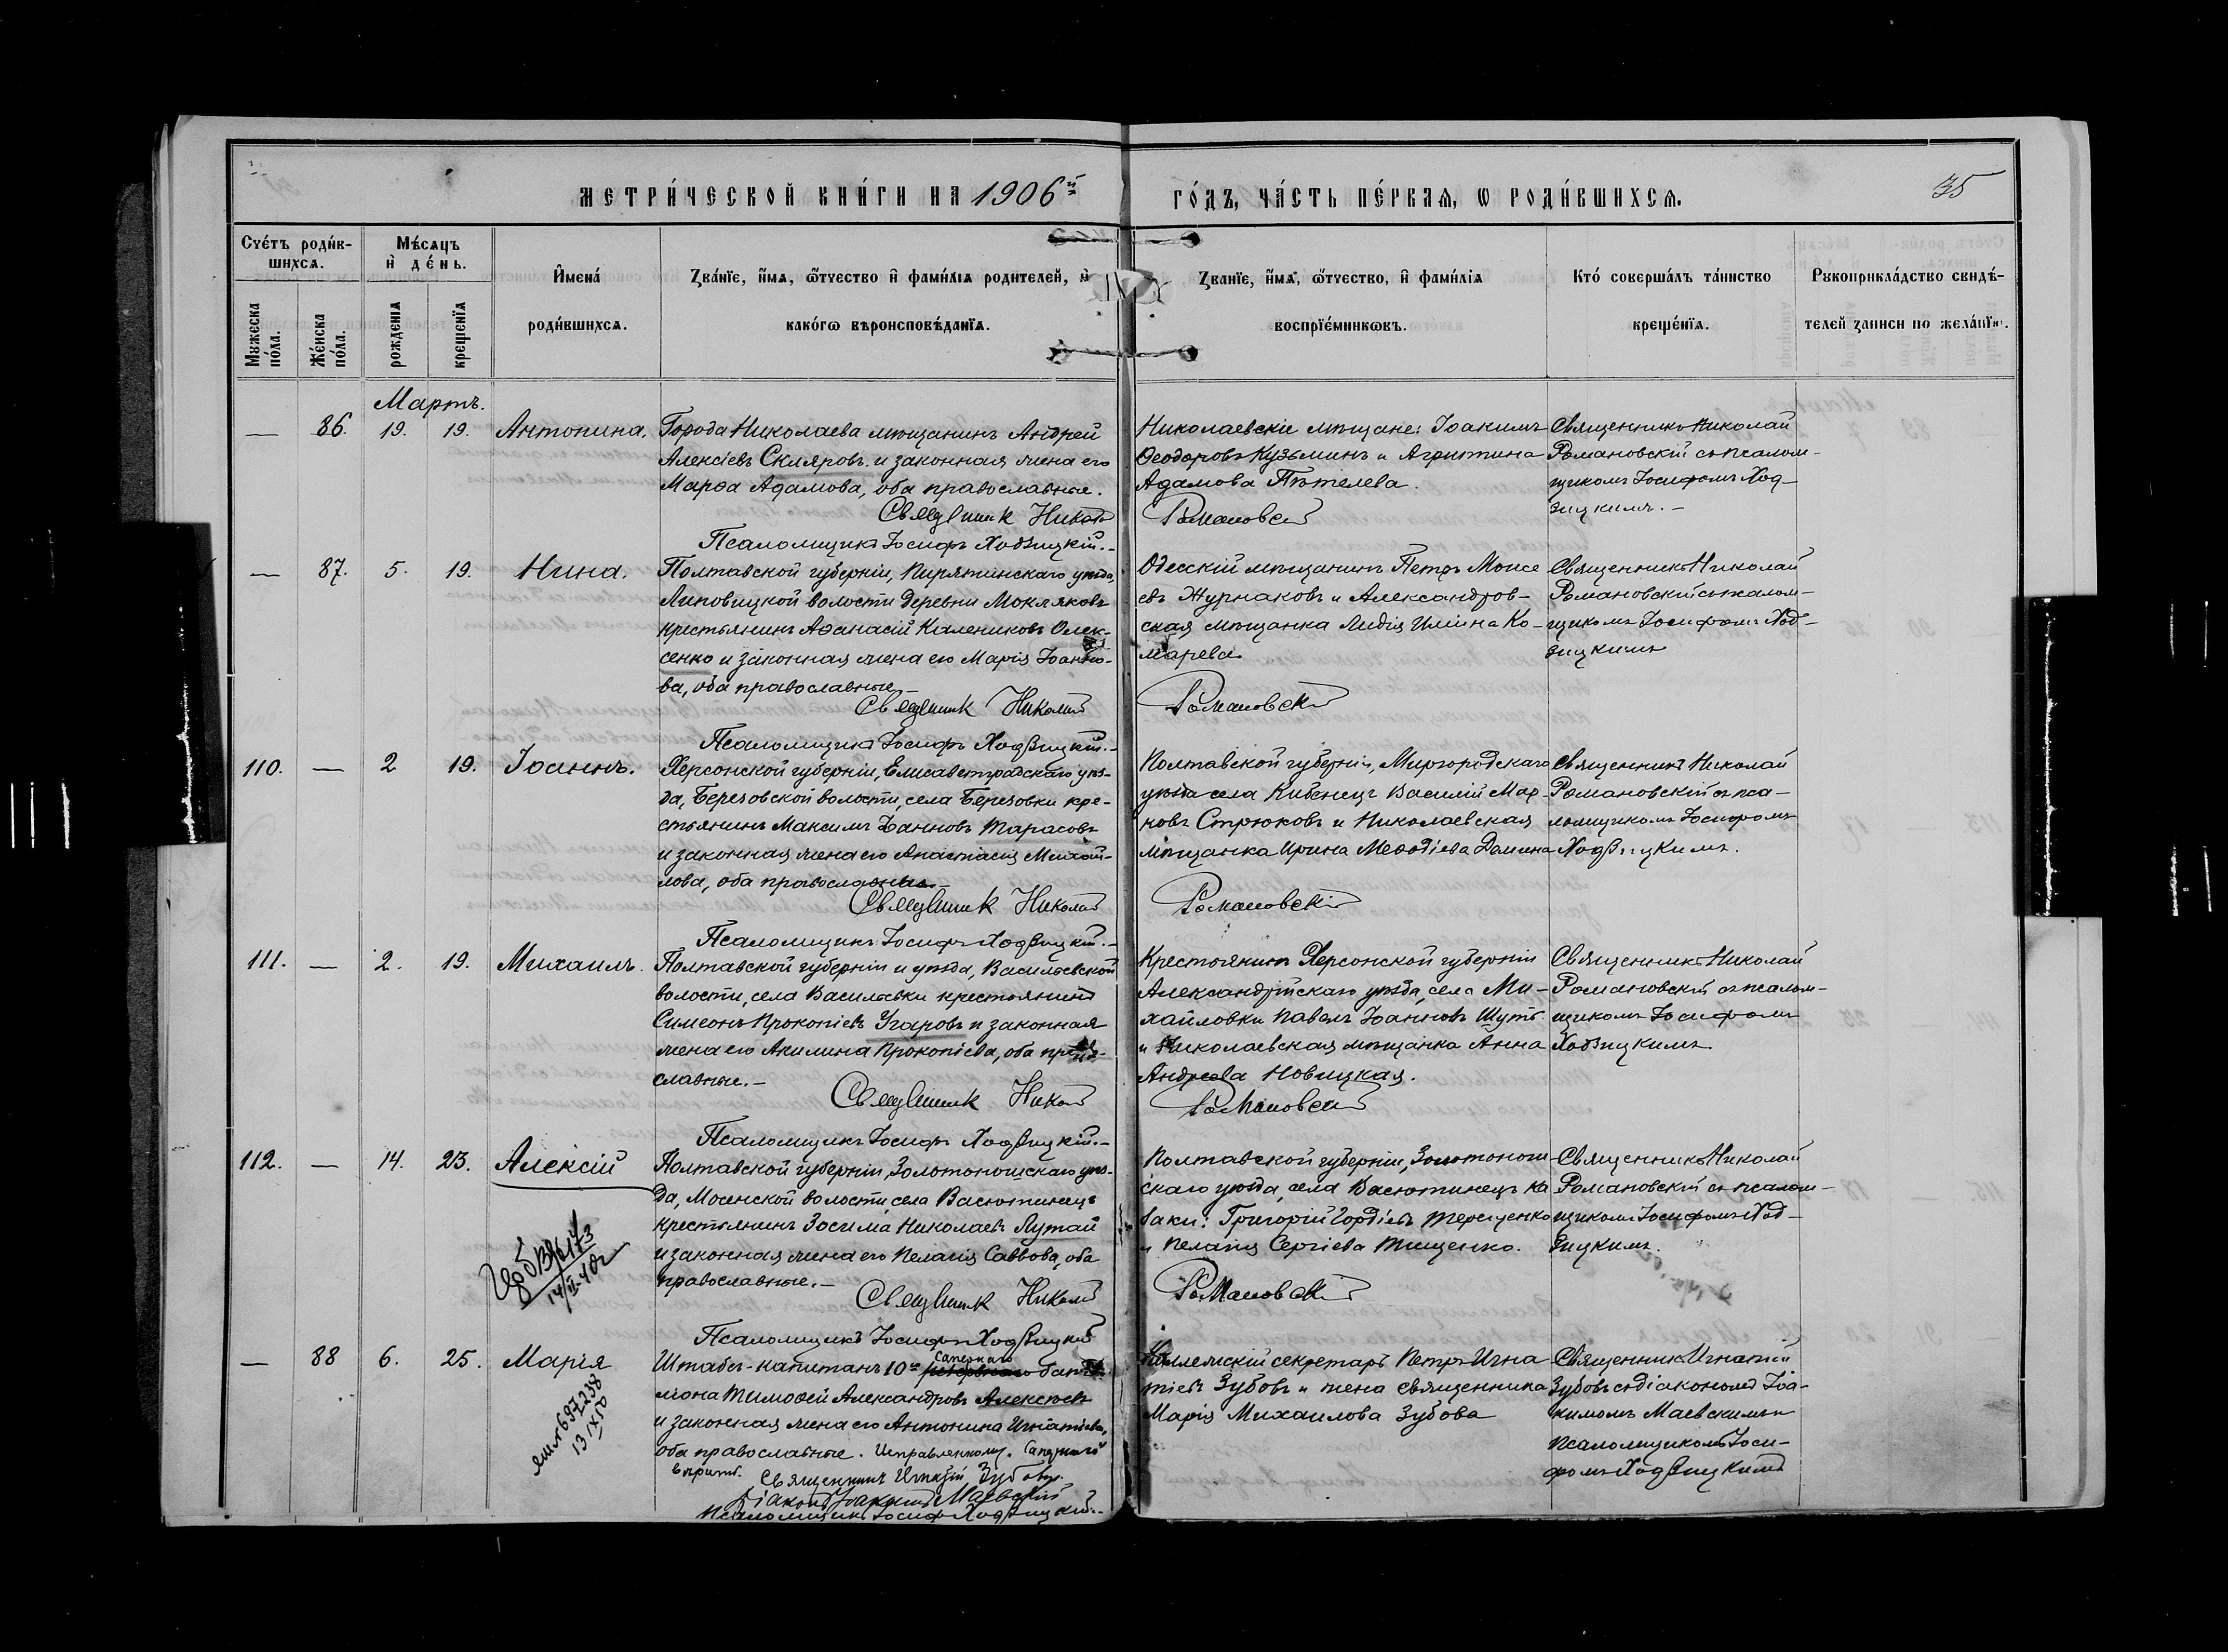 МЕТРИ́ЧЕСКОЙ КНИ́ГИ НА 1906й ГО́ДЪ, ЧА́СТЬ ПЕ́РВАѦ, Ѡ РОДИ́ВШИХСѦ. 35
Сче́тъ роди́в-
шихсѧ.
Мѣ́сѧцъ
и҆ де́нь.
Мꙋжеска по́ла.
Же́нска по́ла.
рожденїѧ
крещенїѧ
И҆мена́
роди́вшихсѧ.
Зва́нїе, и҆́мѧ, ѻ҆́тчество и҆ фамі́лїѧ родителей, и҆
како́гѡ вѣроисповѣ́данїѧ.
Зва́нїе, и҆́мѧ, ѻ҆́тчество, и҆ фамі́лїѧ
воспрїе́мникѡвъ.
Кто́ соверша́лъ та́инство
креще́нїѧ.
Рꙋкоприкла́дство свидѣ́-
телей записи по жела́нїю.
Мартъ.
— 86. 19. 19. Антонина.
Города Николаева мѣщанинъ Андрей
Алексіевъ Скляровъ и законная жена его
Марѳа Адамова, оба православные.
Священникъ Николай
Псаломщикъ Іосифъ Ходзицкій.-
Николаевскіе мѣщане: Іоакимъ
Ѳеодоровъ Кузьминъ и Агрипина
Адамова Пѣтелева.
Романовскій
Священникъ Николай
Романовскій съ псалом-
щикомъ Іосифомъ Ход-
зицкимъ.-
— 87. 5. 19. Нина.
Полтавской губерніи, Пирятинскаго уѣзда,
Липовицкой волости деревни Мокляковъ
крестьянинъ Аѳанасій Калениковъ Олек-
сенко и законная жена его Марія Іоанно-
ва, оба православные.-
Священникъ Николай
Псаломщикъ Іосифъ Ходзицкій.-
Одесскій мѣщанинъ Петръ Моисе
евъ Журнаковъ и Александров-
ская мѣщанка Лидія Ильина Ко-
марева.
Романовскій
Священникъ Николай
Романовскій съ псалом-
щикомъ Іосифомъ Ход-
зицкимъ
110. — 2 19. Іоаннъ.
Херсонской губерніи, Елисаветградскаго уѣз-
да, Березовской волости, села Березовки кре-
стьянинъ Максимъ Іоанновъ Тарасовъ
и законная жена его Анастасія Михай-
лова, оба православные.-
Священникъ Николай
Псаломщикъ Іосифъ Ходзицкій.-
Полтавской губерніи, Миргородскаго
уѣзда села Кибенецъ Василій Мар-
ковъ Стрюковъ и Николаевская
мѣщанка Ирина Меѳодіева Демина
Романовскій
Священникъ Николай
Романовскій съ пса-
ломщикомъ Іосифомъ
Ходзицкимъ.
111. — 2. 19. Михаилъ.
Полтавской губерніи и уѣзда, Васильевской
волости, села Васильевки крестьянинъ
Симеонъ Прокопіевъ Угаровъ и законная
жена его Акилина Прокопіева, оба право-
славные.-
Священникъ Николай
Псаломщикъ Іосифъ Ходзицкій.-
Крестьянинъ Херсонской губерніи
Александрійскаго уѣзда, села Ми-
хайловки Павелъ Іоанновъ Шутъ
и Николаевская мѣщанка Анна
Андреева Новицкая.
Романовскій
Священникъ Николай
Романовскій съ псалом-
щикомъ Іосифомъ
Ходзицкимъ.
112. — 14. 23. Алексій
Полтавской губерніи, Золотоношскаго уѣз-
да, Мосенской волости, села Васютинецъ
крестьянинъ Зосима Николаевъ Лутай
и законная жена его Пелагія Саввова, оба
православные.-
Священникъ Николай
Псаломщикъ Іосифъ Ходзицкій
Полтавской губерніи, Золотонош-
скаго уѣзда, села Васютинецъ ка
заки: Григорій Гордіевъ Терещенко
и Пелагія Сергіева Тищенко.
Романовскій
Священникъ Николай
Романовскій съ псалом-
щикомъ Іосифомъ Ход-
зицкимъ.
— 88 6. 25. Марія
697238
13 IX 50
Штабсъ-капитанъ 10го Сапернаго бата-
ліона Тимоѳей Александровъ Алексѣевъ
и законная жена его Антонина Игнатіева,
оба православные. Исправленному: Сапернаго
вѣрить.
Священникъ Игнатій Зубовъ
Діаконъ Іоакимъ Маевскій
Псаломщикъ Іосифъ Ходзицкій.-
Коллежскій секретарь Петръ Игна
тіевъ Зубовъ и жена священника
Марія Михаилова Зубова
Священникъ Игнатій
Зубовъ съ діакономъ Іоа-
кимомъ Маевскимъ и
псаломщикомъ Іоси-
фомъ Ходзицкимъ